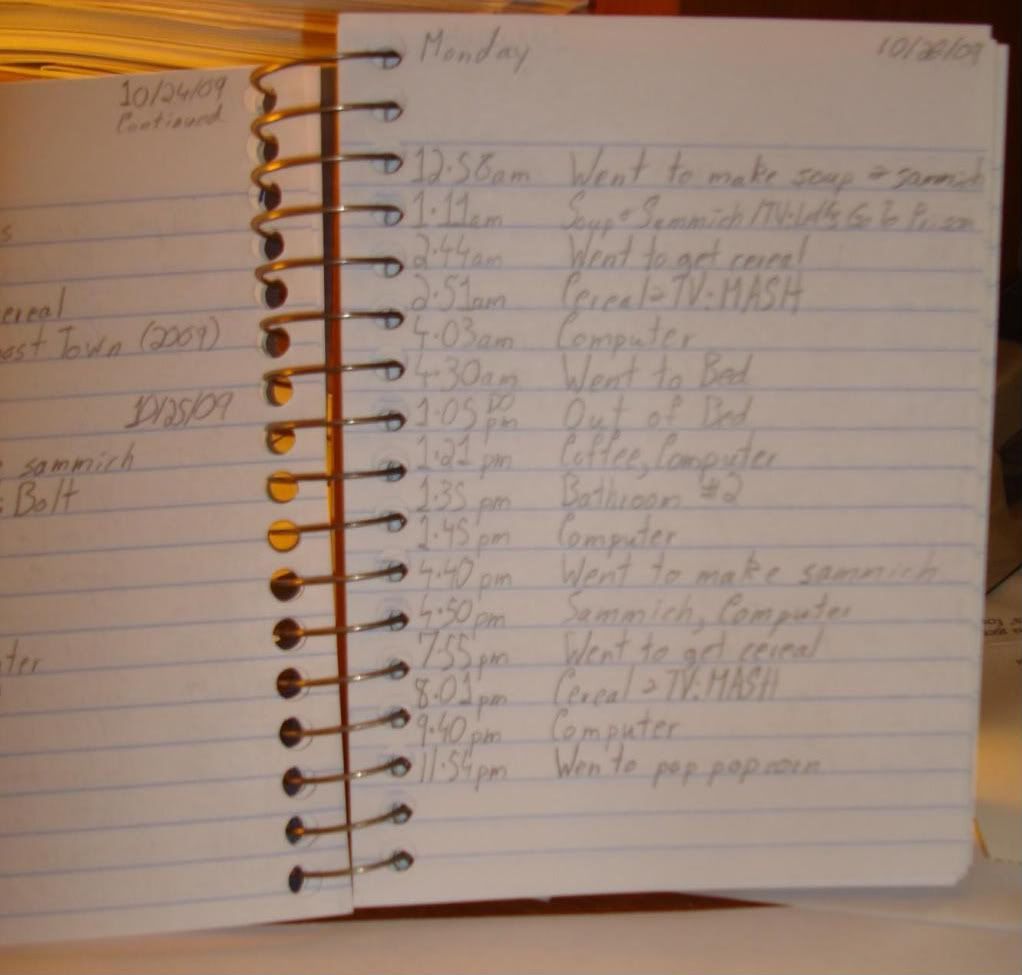 10/24/09
Continued
s
ereal
ast Town (2009)
10/25/09
sammich
: Bolt
ter
Monday 10/26/09
12:58am Went to make soup & sammich
1:11am Soup & Sammich/TV: Let's Go To Prison
2:44am Went to get cereal
2:51am Cereal & TV: MASH
4:03am Computer
4:30am Went to Bed
1:05pm Out of Bed
1:21pm Coffee, Computer
1:35pm Bathroom #2
1:45pm Computer
4:40pm Went to make sammich
4:50pm Sammich, Computer
7:55pm Went to get cereal
8:01pm Cereal & TV: MASH
9:40pm Computer
11:54pm Wen to pop popcorn